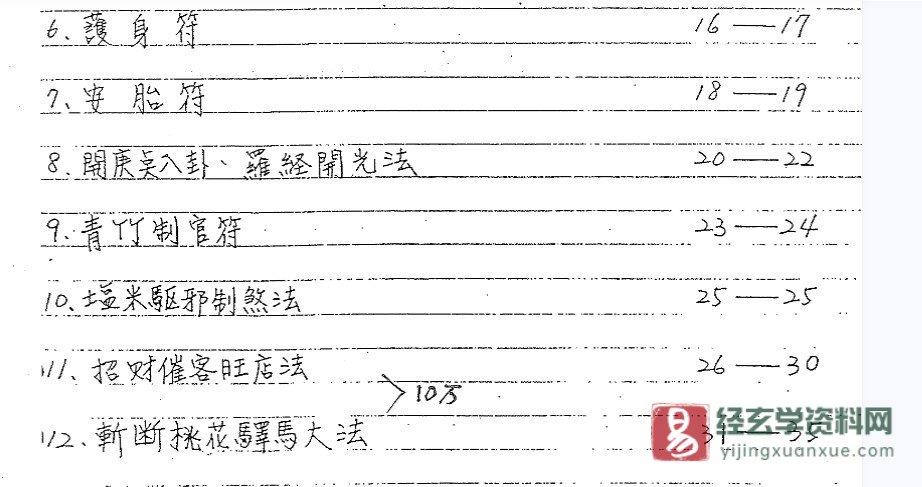 6、護身符 16——17
7、安胎符 18——19
8、開庚点八卦、羅経開光法 20——22
9、青竹制官符 23——24
10、塩米駆邪制煞法 25——25
11、招财催客旺店法 26——30
10万
12、斬断桃花驛馬大法 31——35
易 经玄学资料网
yijingxuanxue.com